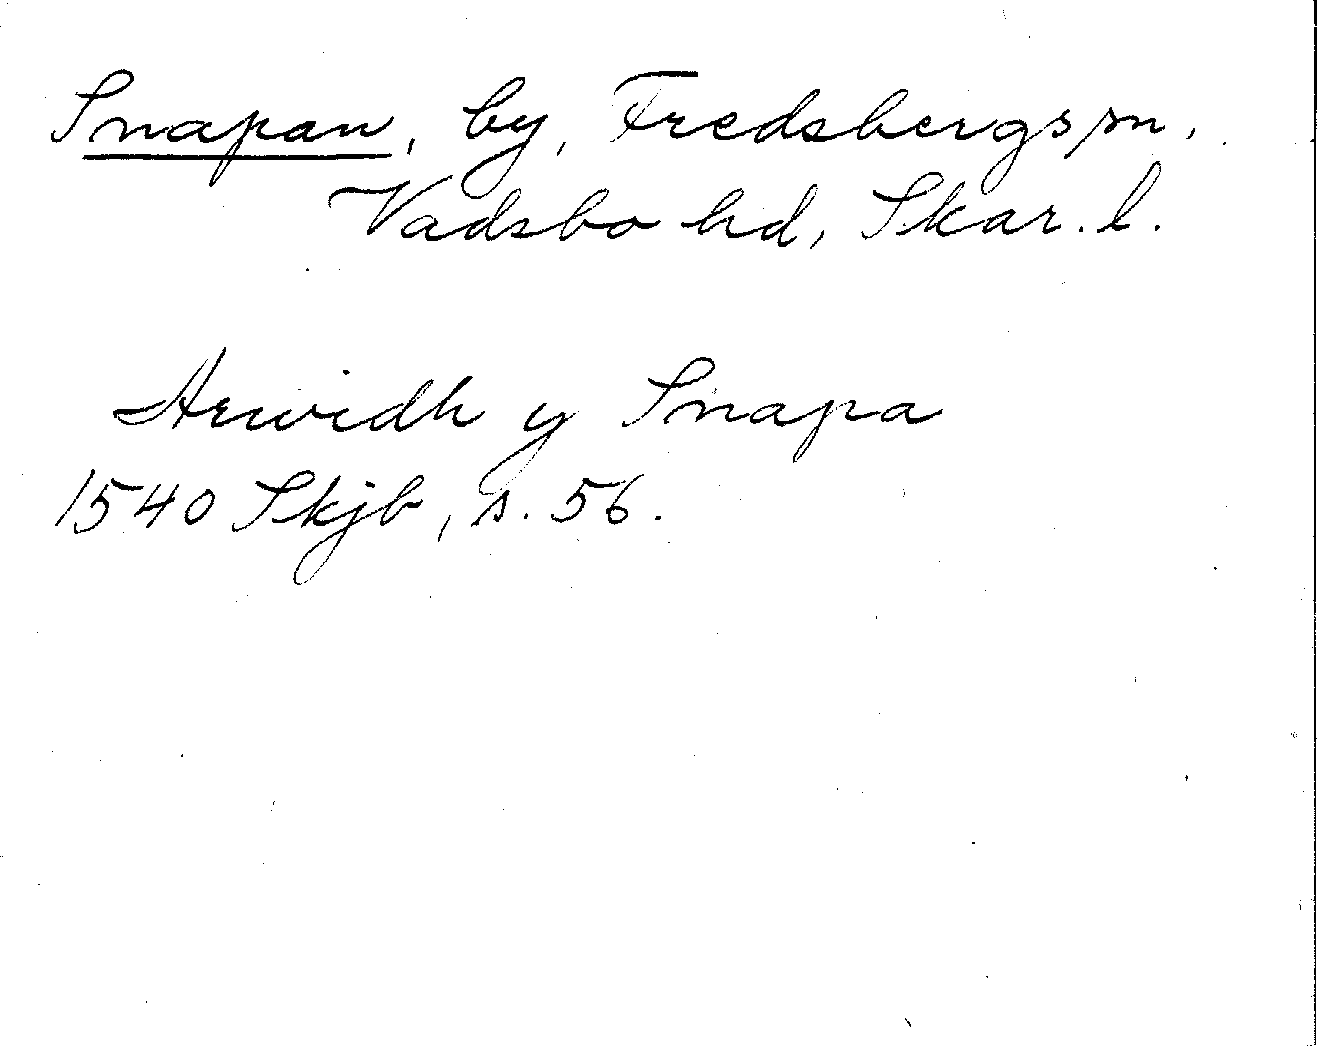 Snapan, by, Fredsbergs sn,
Vadsbo hd, Skar. l.
Arwidh y Snapa
1540 Skjb, s. 56.